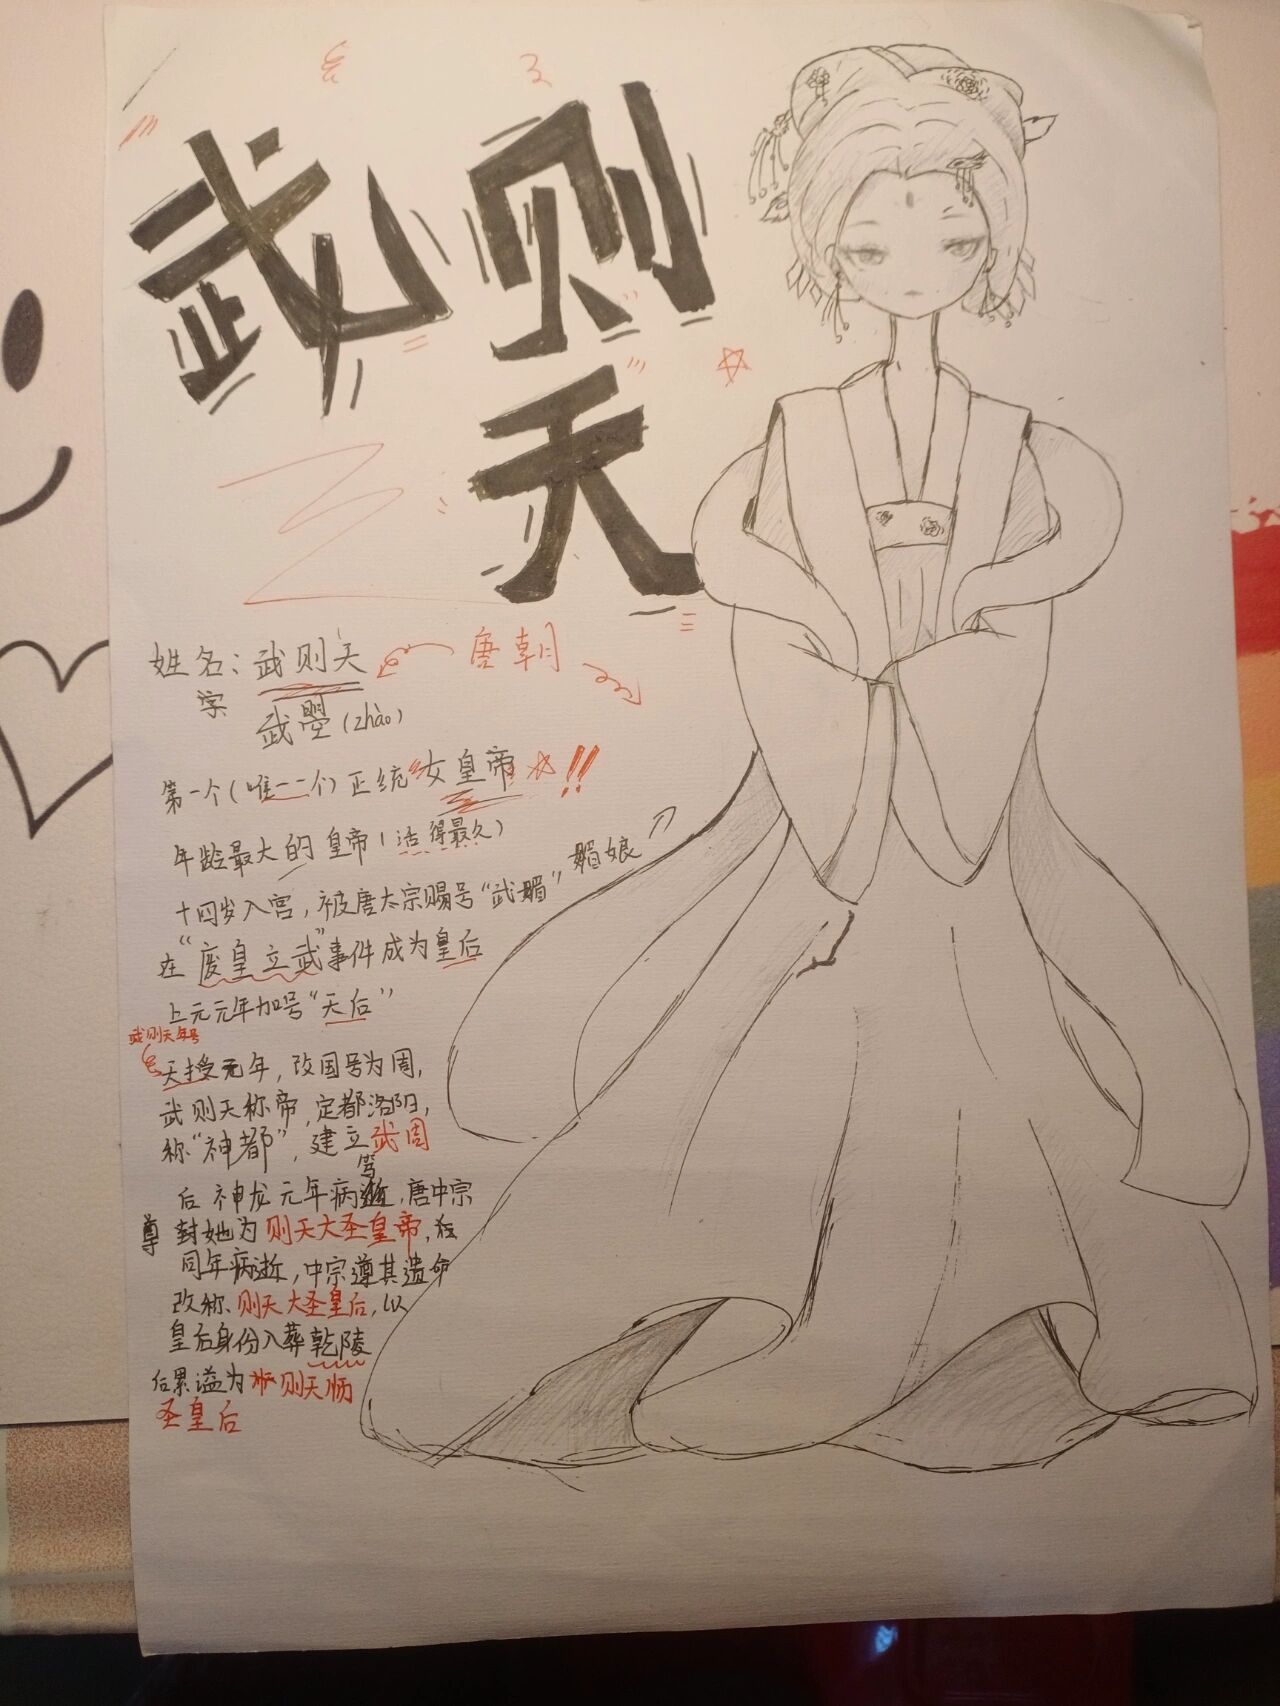 武则
天
姓名：武则天
唐朝
字
武曌(zhào)
第一个(唯一一个)正统女皇帝!!
年龄最大的皇帝(活得最久)
十四岁入宫，被唐太宗赐号“武媚”媚娘
在“废皇立武”事件成为皇后
上元元年加号“天后”
武则天年号
天授元年，改国号为周，
武则天称帝，定都洛阳，
称“神都”，建立武周
后神龙元年病笃，唐中宗
尊封她为则天大圣皇帝，
同年病逝，中宗遵其遗命
改称则天大圣皇后，以
皇后身份入葬乾陵
后累谥为则天顺
圣皇后